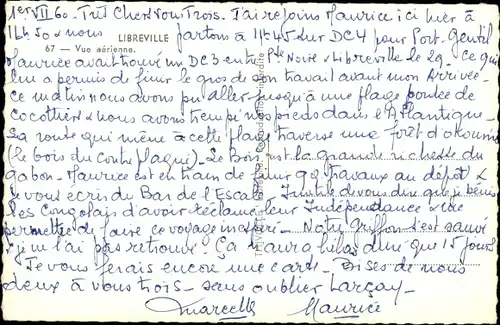 1er VII 60 - Très Chers Vous Trois. J'ai rejoins Maurice ici hier à
14h50 & nous partons à 11h45 sur DC4 pour Port-Gentil
LIBREVILLE
67 - Vue aérienne.
Maurice avait trouvé un DC3 entre Pte Noire & Libreville le 29 - ce qui
lui a permis de finir le gros de son travail avant mon Arrivée -
ce matin nous avons pu aller jusqu'à une plage bordée de
cocotiers & nous avons trempé nos pieds dans l'Atlantique
sa route qui mène à cette plage traverse une forêt d'okoumé
(le bois du contreplaqué). Le Bois est la grande richesse du
gabon - Maurice est en train de finir qq travaux au dépôt &
je vous écris du Bar de l'Escale. Inutile de vous dire que je bénis
les Congolais d'avoir réclamé leur Indépendance & de
permettre de faire ce voyage inespéré - Notre Griffon s'est sauvé
& je ne l'ai pas retrouvé. Ça n'aura hélas duré que 15 jours
Je vous ferais encore une carte - Bises de nous
deux à vous trois - sans oublier Larçay -
Marcelle Maurice